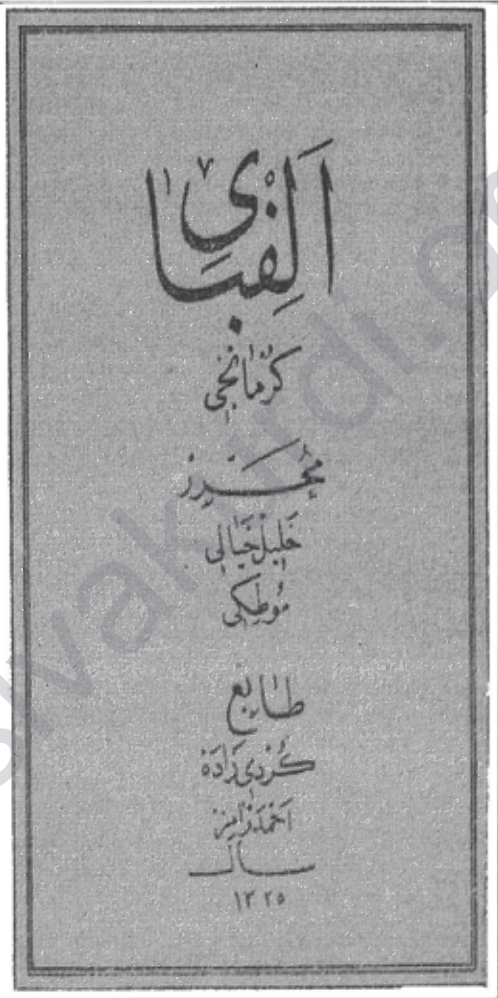 اَلِفْبَاىِٔ
كُرْمَانْجِى
مُحَرِّرْ
خَلِيلْ خَيَالِى
مُوطْكِى
طَابِعْ
كُرْدِى زَادَهْ
اَحْمَدْ رَامِزْ
سال
١٣٢٥